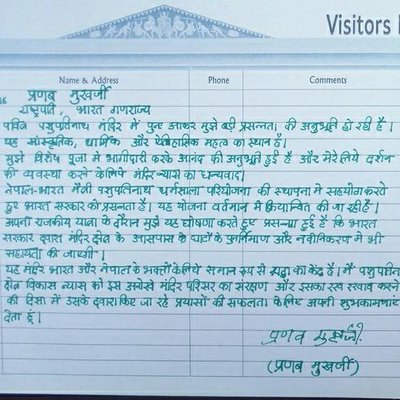 Visitors
Name & Address Phone Comments
प्रणब मुखर्जी
राष्ट्रपति, भारत गणराज्य
पवित्र पशुपतिनाथ मंदिर में पुनः आकर मुझे बड़ी प्रसन्नता की अनुभूति हो रही है।
यह सांस्कृतिक, धार्मिक और ऐतिहासिक महत्व का स्थान है।
मुझे विशेष पूजा में भागीदारी करके आनंद की अनुभूति हुई है और मेरे लिये दर्शन
की व्यवस्था करने के लिये मंदिर न्यास का धन्यवाद।
नेपाल-भारत मैत्री पशुपतिनाथ धर्मशाला परियोजना की स्थापना में सहयोग करते
हुए भारत सरकार को प्रसन्नता है। यह योजना वर्तमान में क्रियान्वित की जा रही है।
अपनी राजकीय यात्रा के दौरान मुझे यह घोषणा करते हुए प्रसन्नता हुई है कि भारत
सरकार द्वारा मंदिर क्षेत्र के आसपास के घाटों के पुनर्निर्माण और नवीनिकरण में भी
सहायता की जाएगी।
यह मंदिर भारत और नेपाल के भक्तों के लिये समान रूप से श्रद्धा का केंद्र है। मैं पशुपति
क्षेत्र विकास न्यास को इस अनोखे मंदिर परिसर का संरक्षण और इसका रख रखाव करने
की दिशा में उसके द्वारा किए जा रहे प्रयासों की सफलता के लिए अपनी शुभकामनाएं
देता हूं।
प्रणव मुखर्जी
(प्रणब मुखर्जी)